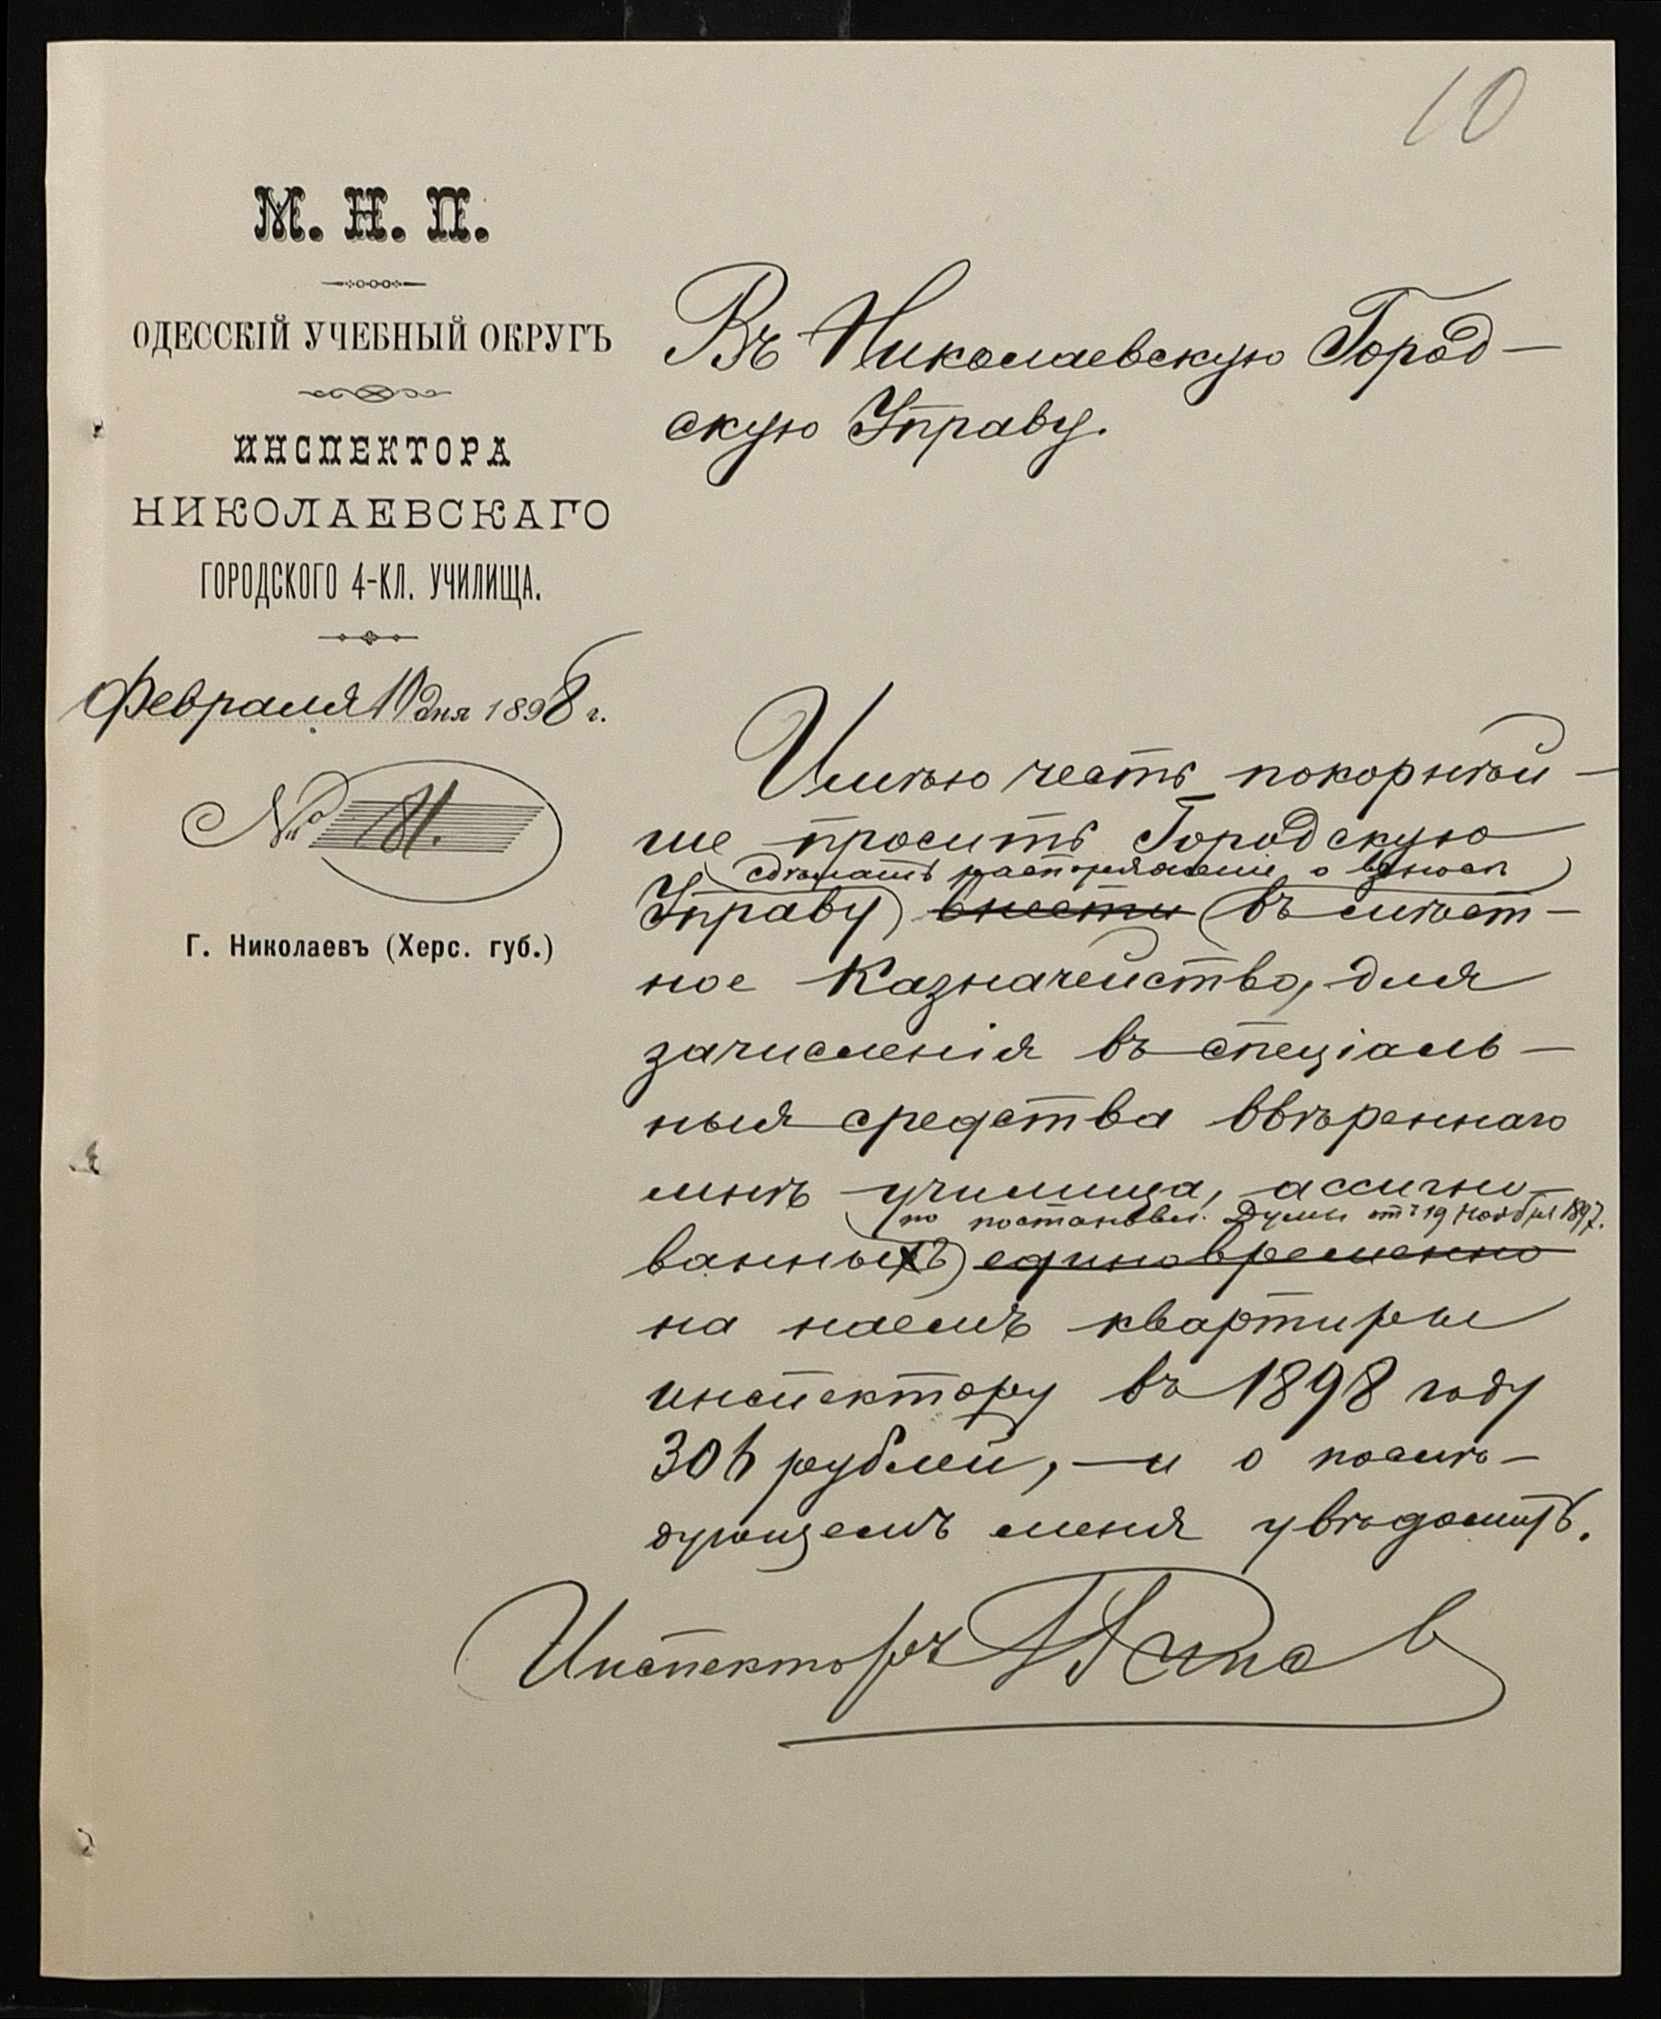 10
М. Н. П.
ОДЕССКІЙ УЧЕБНЫЙ ОКРУГЪ
ИНСПЕКТОРА
НИКОЛАЕВСКАГО
ГОРОДСКОГО 4-КЛ. УЧИЛИЩА.
Февраля 10 дня 1898 г.
№ 81.
Г. Николаевъ (Херс. губ.)
Въ Николаевскую Город-
скую Управу.
Имѣю честь покорнѣй-
ше просить Городскую
сдѣлать распоряженіе о взносѣ
Управу внести въ мѣст-
ное Казначейство, для
зачисленія въ спеціаль-
ныя средства ввѣреннаго
мнѣ училища, ассигно-
по постановл. Думы отъ 19 Ноября 1897.
ванныхъ единовременно
на наемъ квартиры
инспектору въ 1898 году
рублей, - и о послѣ-
дующемъ меня увѣдомить.
Инспекторъ